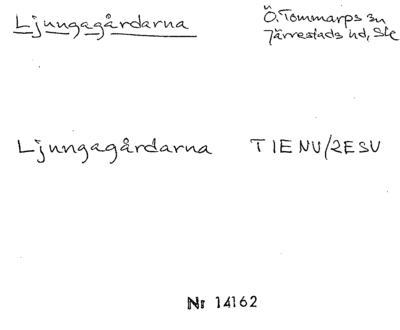 Ljungagårdarna
Ö. Tommarps sn
Järrestads hd, Ske
Ljungagårdarna TIENU/2ESU
Nr 14162